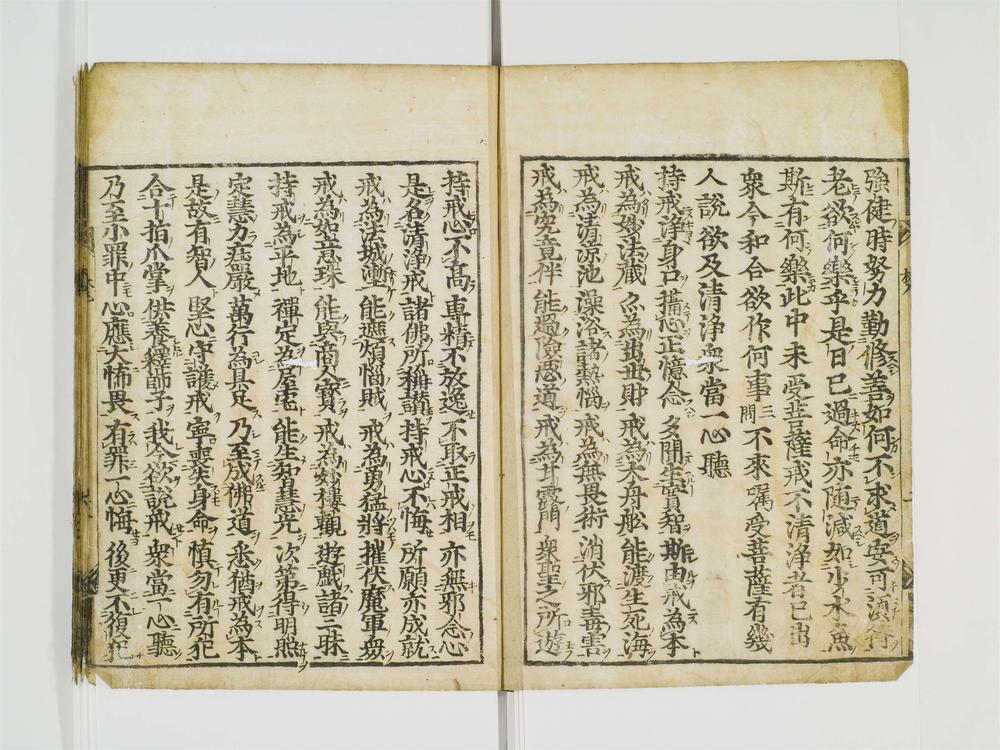 強健時努力勤修善如何不求道安可須待
老欲何樂乎是日已過命亦随減如少水魚
斯有何樂此中未受菩薩戒不清淨者已出
衆今和合欲作何事三問不來囑受菩薩有幾
人說欲及清淨衆當一心聽
持戒淨身口 攝心正憶念 多聞生實智 斯由戒為本
戒為妙法蔵 亦為出世財 戒為大舟舩 能渡生死海
戒為清涼池 澡浴諸熱悩 戒為無畏術 消伏邪毒害
戒為究竟伴 能過險悪道 戒為甘露門 衆聖之所遊
持戒心不髙 專精不放逸 不取正戒相 亦無邪念心
是名清淨戒 諸佛所稱讃 持戒心不悔 所願亦成就
戒為法城塹 能遮煩惱賊 戒為勇猛將 摧伏魔軍衆
戒為如意珠 能與商人寳 戒為妙樓觀 遊戲諸三昧
持戒為平地 禪定為屋宅 能生智慧光 次第得明照
定慧力荘嚴 萬行為具足 乃至成佛道 悉猶戒為本
是故有智人 堅心守護戒 寧喪失身命 慎勿有所犯
合十指爪掌 供養釋師子 我今欲說戒 衆當一心聽
乃至小罪中 心應大怖畏 有罪一心悔 後更不復犯